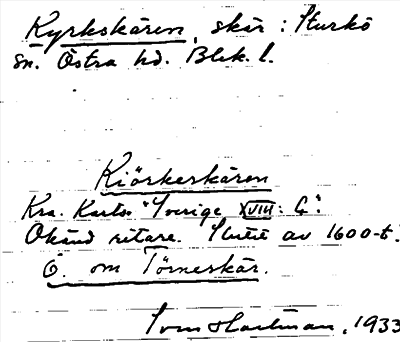 Kyrkskären, skär : Sturkö
sn. Östra hd. Blek. l.
Kiörkeskären
Kra. Karta "Sverige XVIII: 6".
Okänd ritare. Slutet av 1600-t.
Ö. om Törneskär.
Sven Hartman, 1933